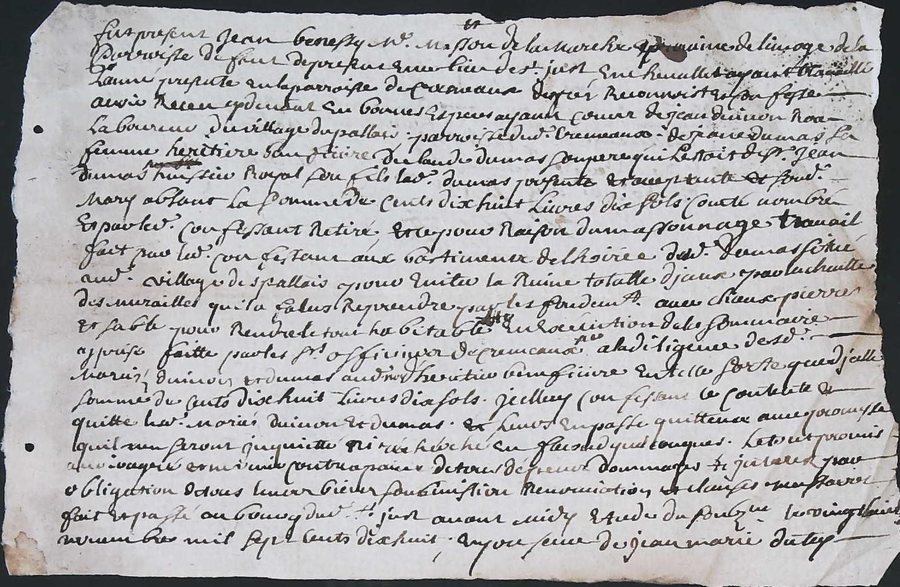 fut present jean benessy Me Masson de la marche province de limoge de la
Parroisse de de present en ce lieu de St just en chevallet ayant travaillé
Lanné presente en la parroisse de Cremeaux de gré Reconnoist et confesse
avoir Receu cydevant en bonnes Especes ayant cours de jean duinon
Laboureur du village du pallais parroisse dud. Cremeaux de janne dumas sa
femme heritiere benficiere de Claude dumas son pere qui Lestoit de Sr jean
dumas huissier Royal son fils lad. dumas presente et acceptante et sond.
Mary absant La somme de Cents dix huit Livres dix sols Conté nombré
Et par led. Confessant Retiré Et ce pour Raison du massonnage travail
fait par led. Confessant aux bastiments de lhoirie dud. dumas scitué
aud. village des pallais pour Eviter la Ruine totalle diceux par la chutte
des murailles quil a fallus Reprendre par les fondemts avec chaux pierre
et sable pour Rendre le tout habitable En Execution de la sommaire
apprise faitte par les Srs officiers de Cremeaux a la diligence desd.
Mariés duinon et dumas aud. nom dheritiere benficiere En telle sorte que dicelle
somme de Cents dix huit Livres dix sols jcelluy Confessant se Contente et
quitte lesd. Mariés duinon et dumas et Leurs En passe quittence avec promesse
quil nen seront jnquietté ni Recherché en facond quelconques Le tout promis
avoir agreé et ne venir au contraire a paine de tous despens dommages et jnterests par
obligation de tous leurs biens soubmission Renonciation et clauses necessaires
fait Et passé au bourg dud. St just avant Midy Estude du soubzné le vingt huit
novembre mil sept Cents dix huit En presence de jean marie dutey